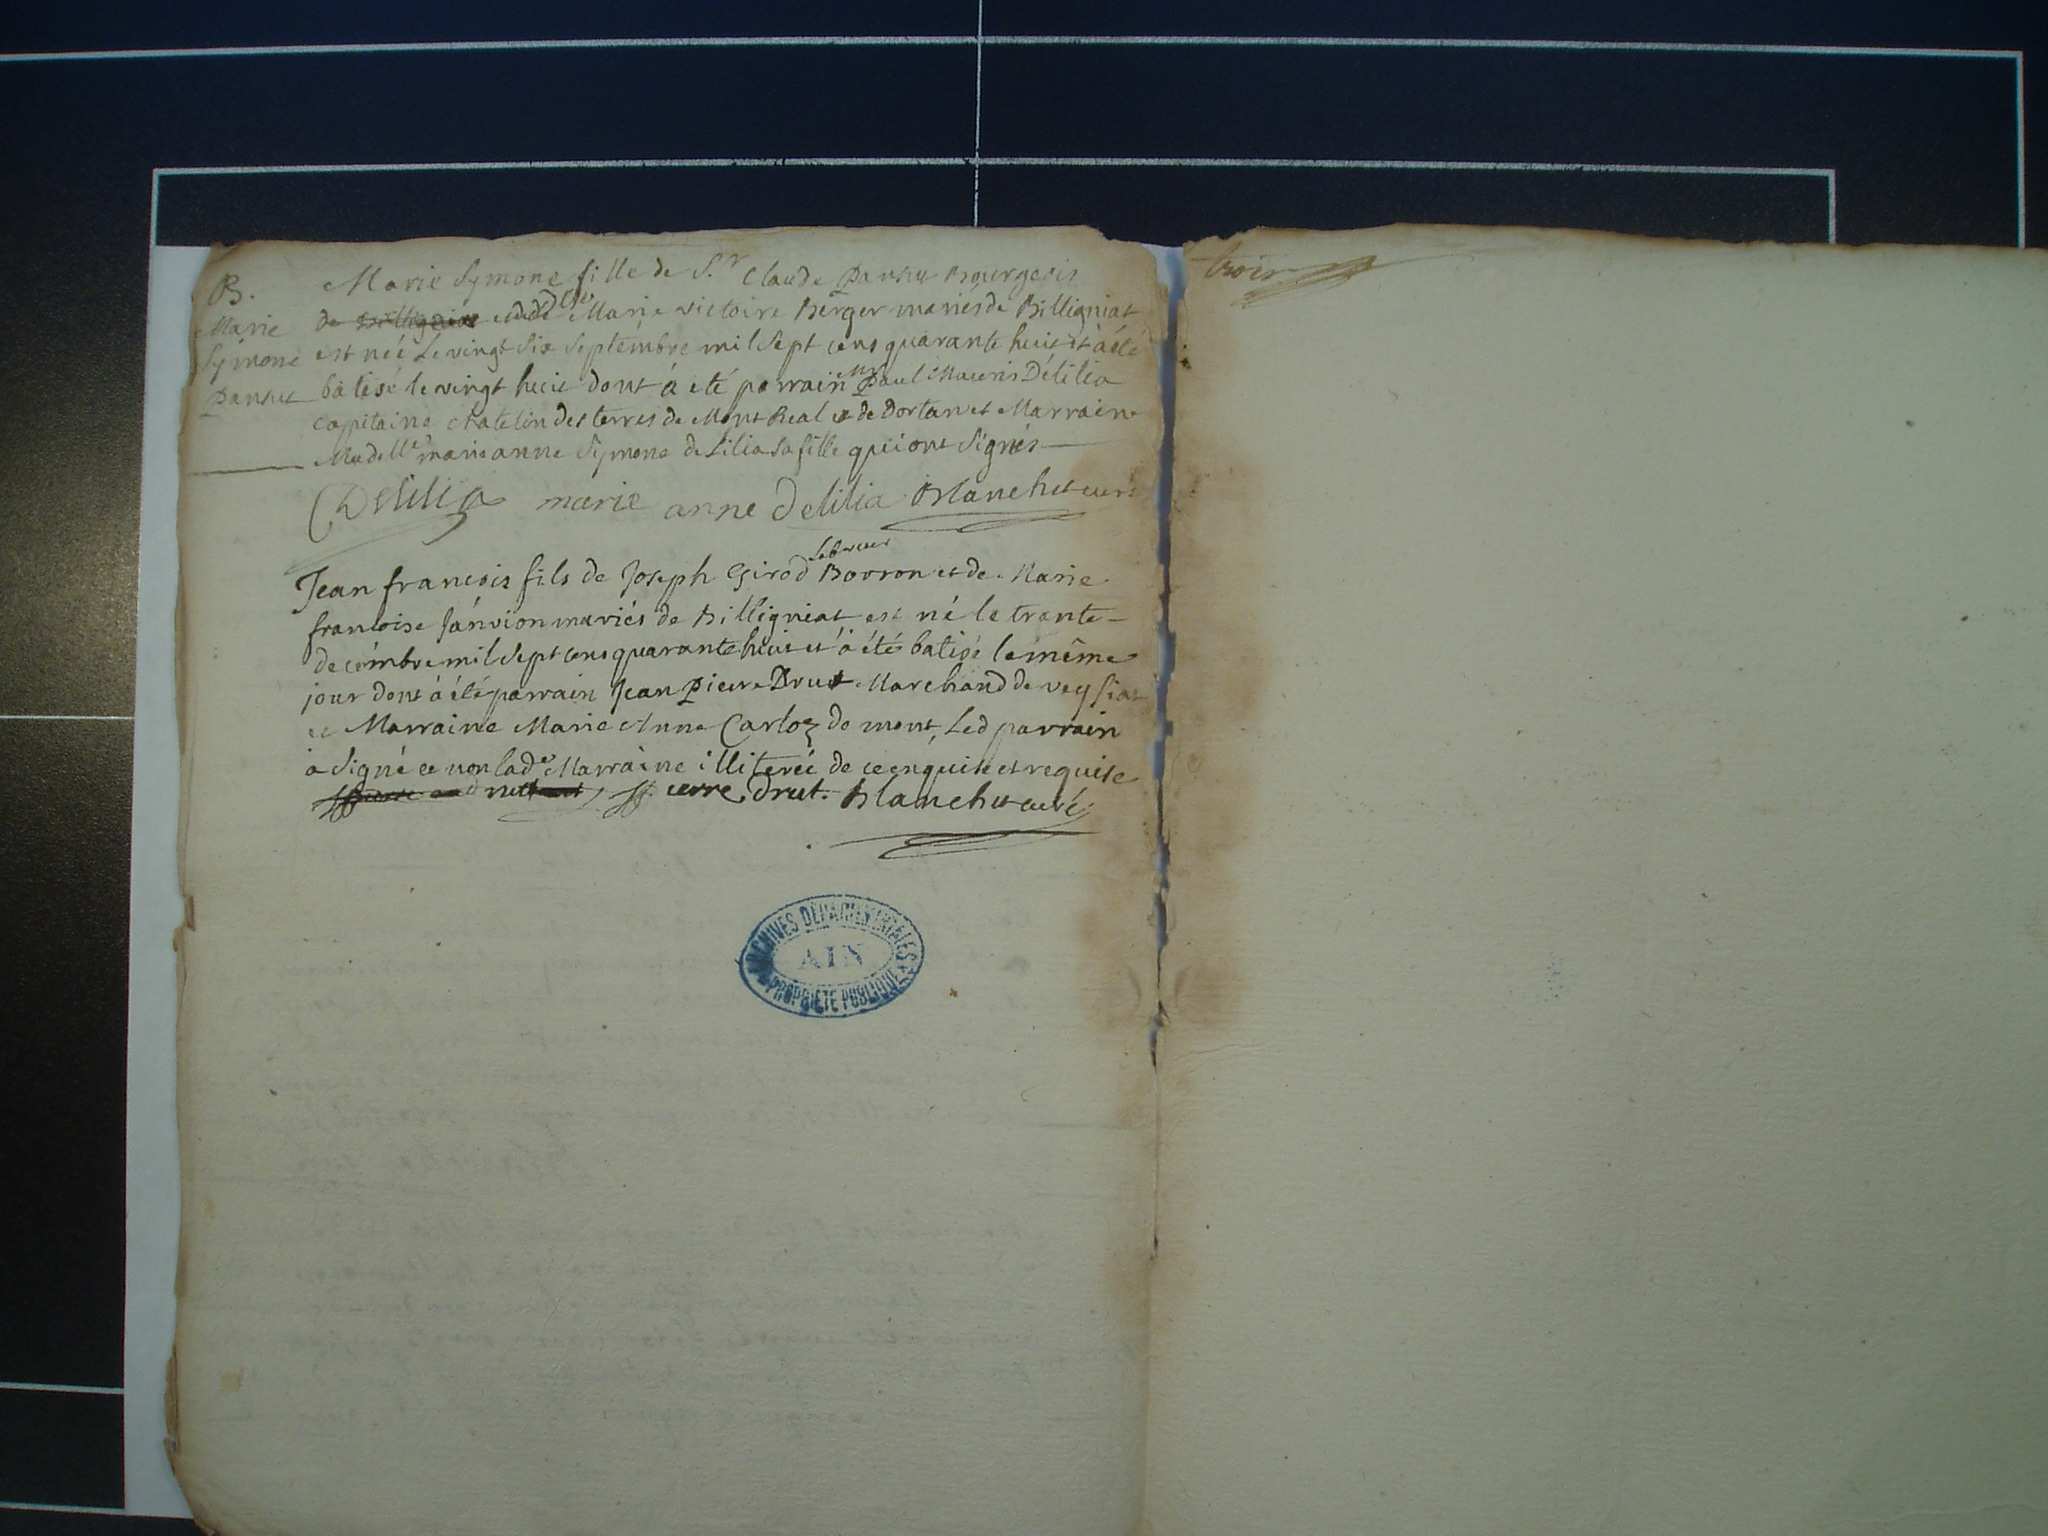 B.
Marie
Symone
Pansut
Marie Symone fille de S.r Claude Pansut Bourgeois
de Billigniat et de Dlle Marie victoire Berger mariés de Billigniat
est née le vingt six septembre mil sept cens quarante huit et à été
batisé le vingt huit dont à eté parrain Mr Paul Délilia
capitaine chatelin des terres de Mont Real et de Dortan et Marraine
Madelle marie anne Symone deLilia sa fille qui ont signés
Delilia marie anne Delilia Blanchet curé
Jean francois fils de Joseph Girod Borron laboureur et de Marie
francoise Janvion mariés de Billigniat est né le trante
decembre mil sept cens quarante huit et à été batisé le même
jour dont à été parrain Jean Pierre Drut Marchand de veysiat
et Marraine Marie Anne Carloz de mont, Led parrain
a signé et non lade Marraine illiterée de ce enquise et requise
pierre drut. Blanchet curé
trois
ARCHIVES DEPARTEMENTALES
AIN
PROPRIETE PUBLIQUE